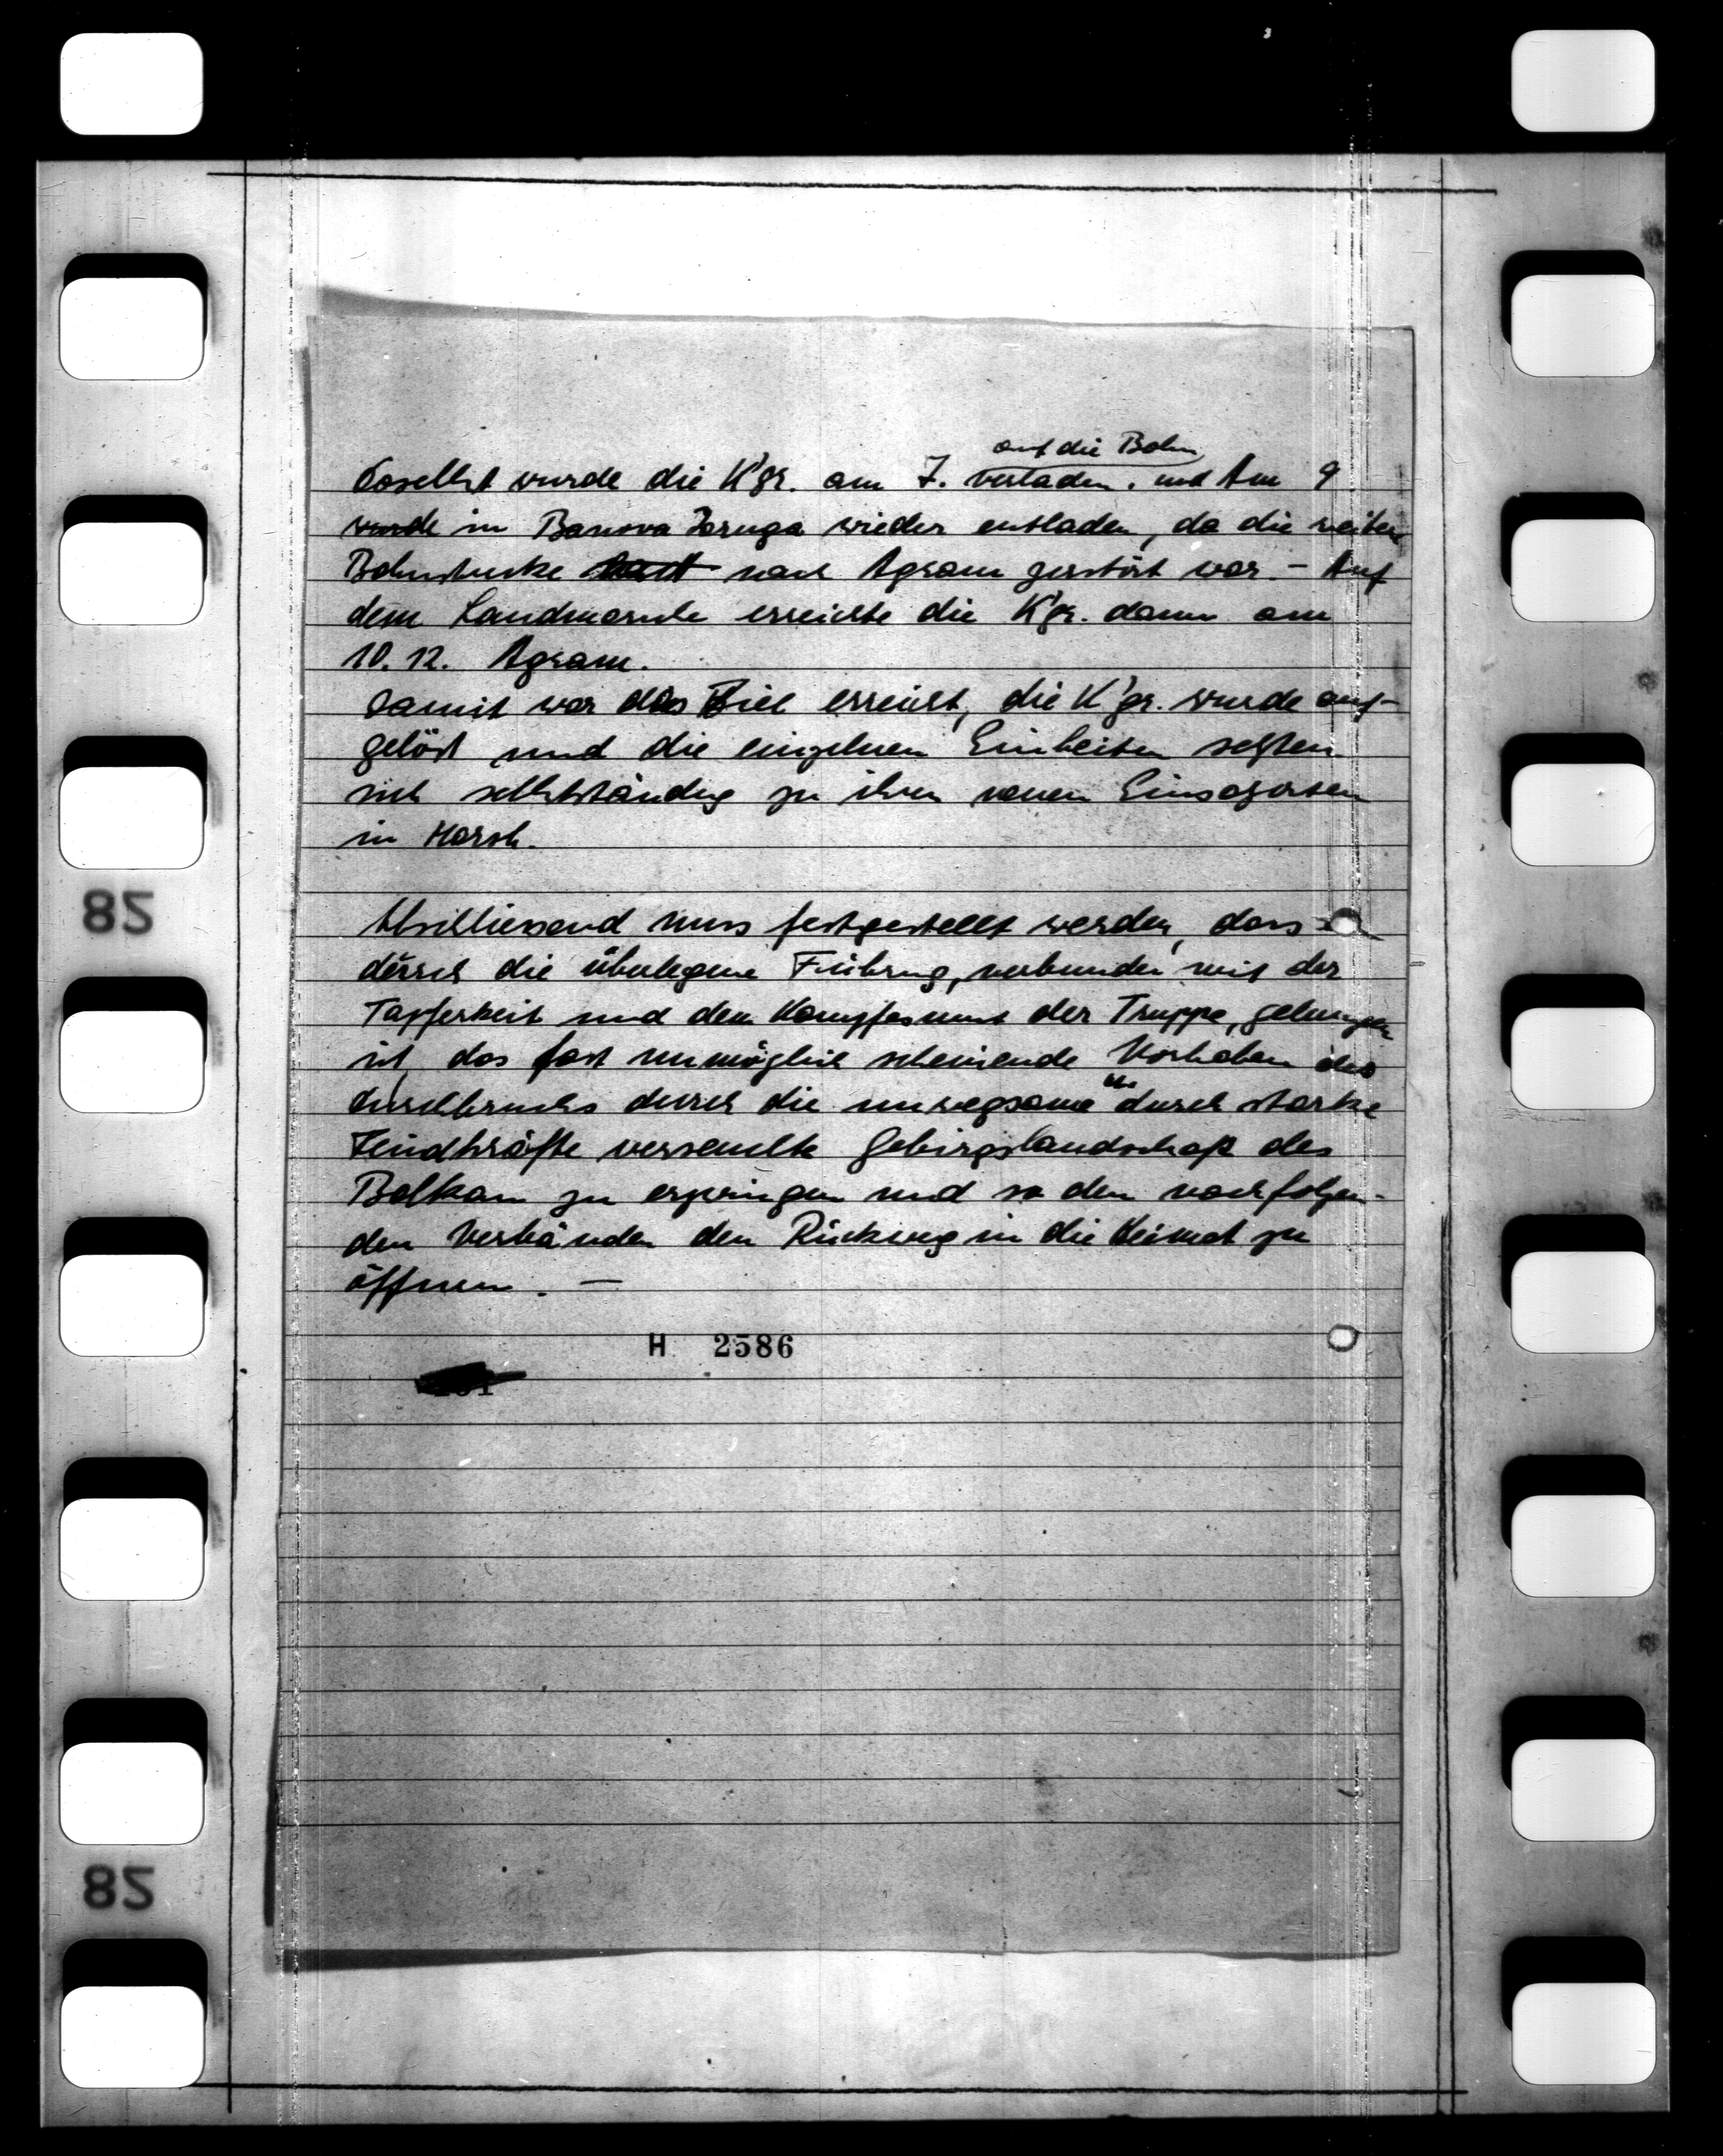 auf die Bahn
Daselbst wurde die K'gr. am 7. verladen. und Am 9
wurde in Banova Jaruga wieder entladen, da die weitere
Bahnstrecke nach Agram zerstört war. - Auf
dem Landmarsche erreichte die K'gr. dann am
10. 12. Agram.
Damit war das Ziel erreicht, die K'gr. wurde auf-
gelöst und die einzelnen Einheiten setzten
sich selbstständig zu ihren neuen Einsatzorten
in Marsch.
Abschliessend muss festgestellt werden, dass
durch die überlegene Führung, verbunden mit der
Tapferkeit und dem Kampfesmut der Truppe, gelungen
ist, das fast unmöglich scheinende Vorhaben des
Durchbruchs durch die unwegsame u. durch starke
Feindkräfte verseuchte Gebirgslandschaft des
Balkan zu erzwingen und so den nachfolgen-
den Verbänden den Rückweg in die Heimat zu
öffnen. —
H 2586
82
82